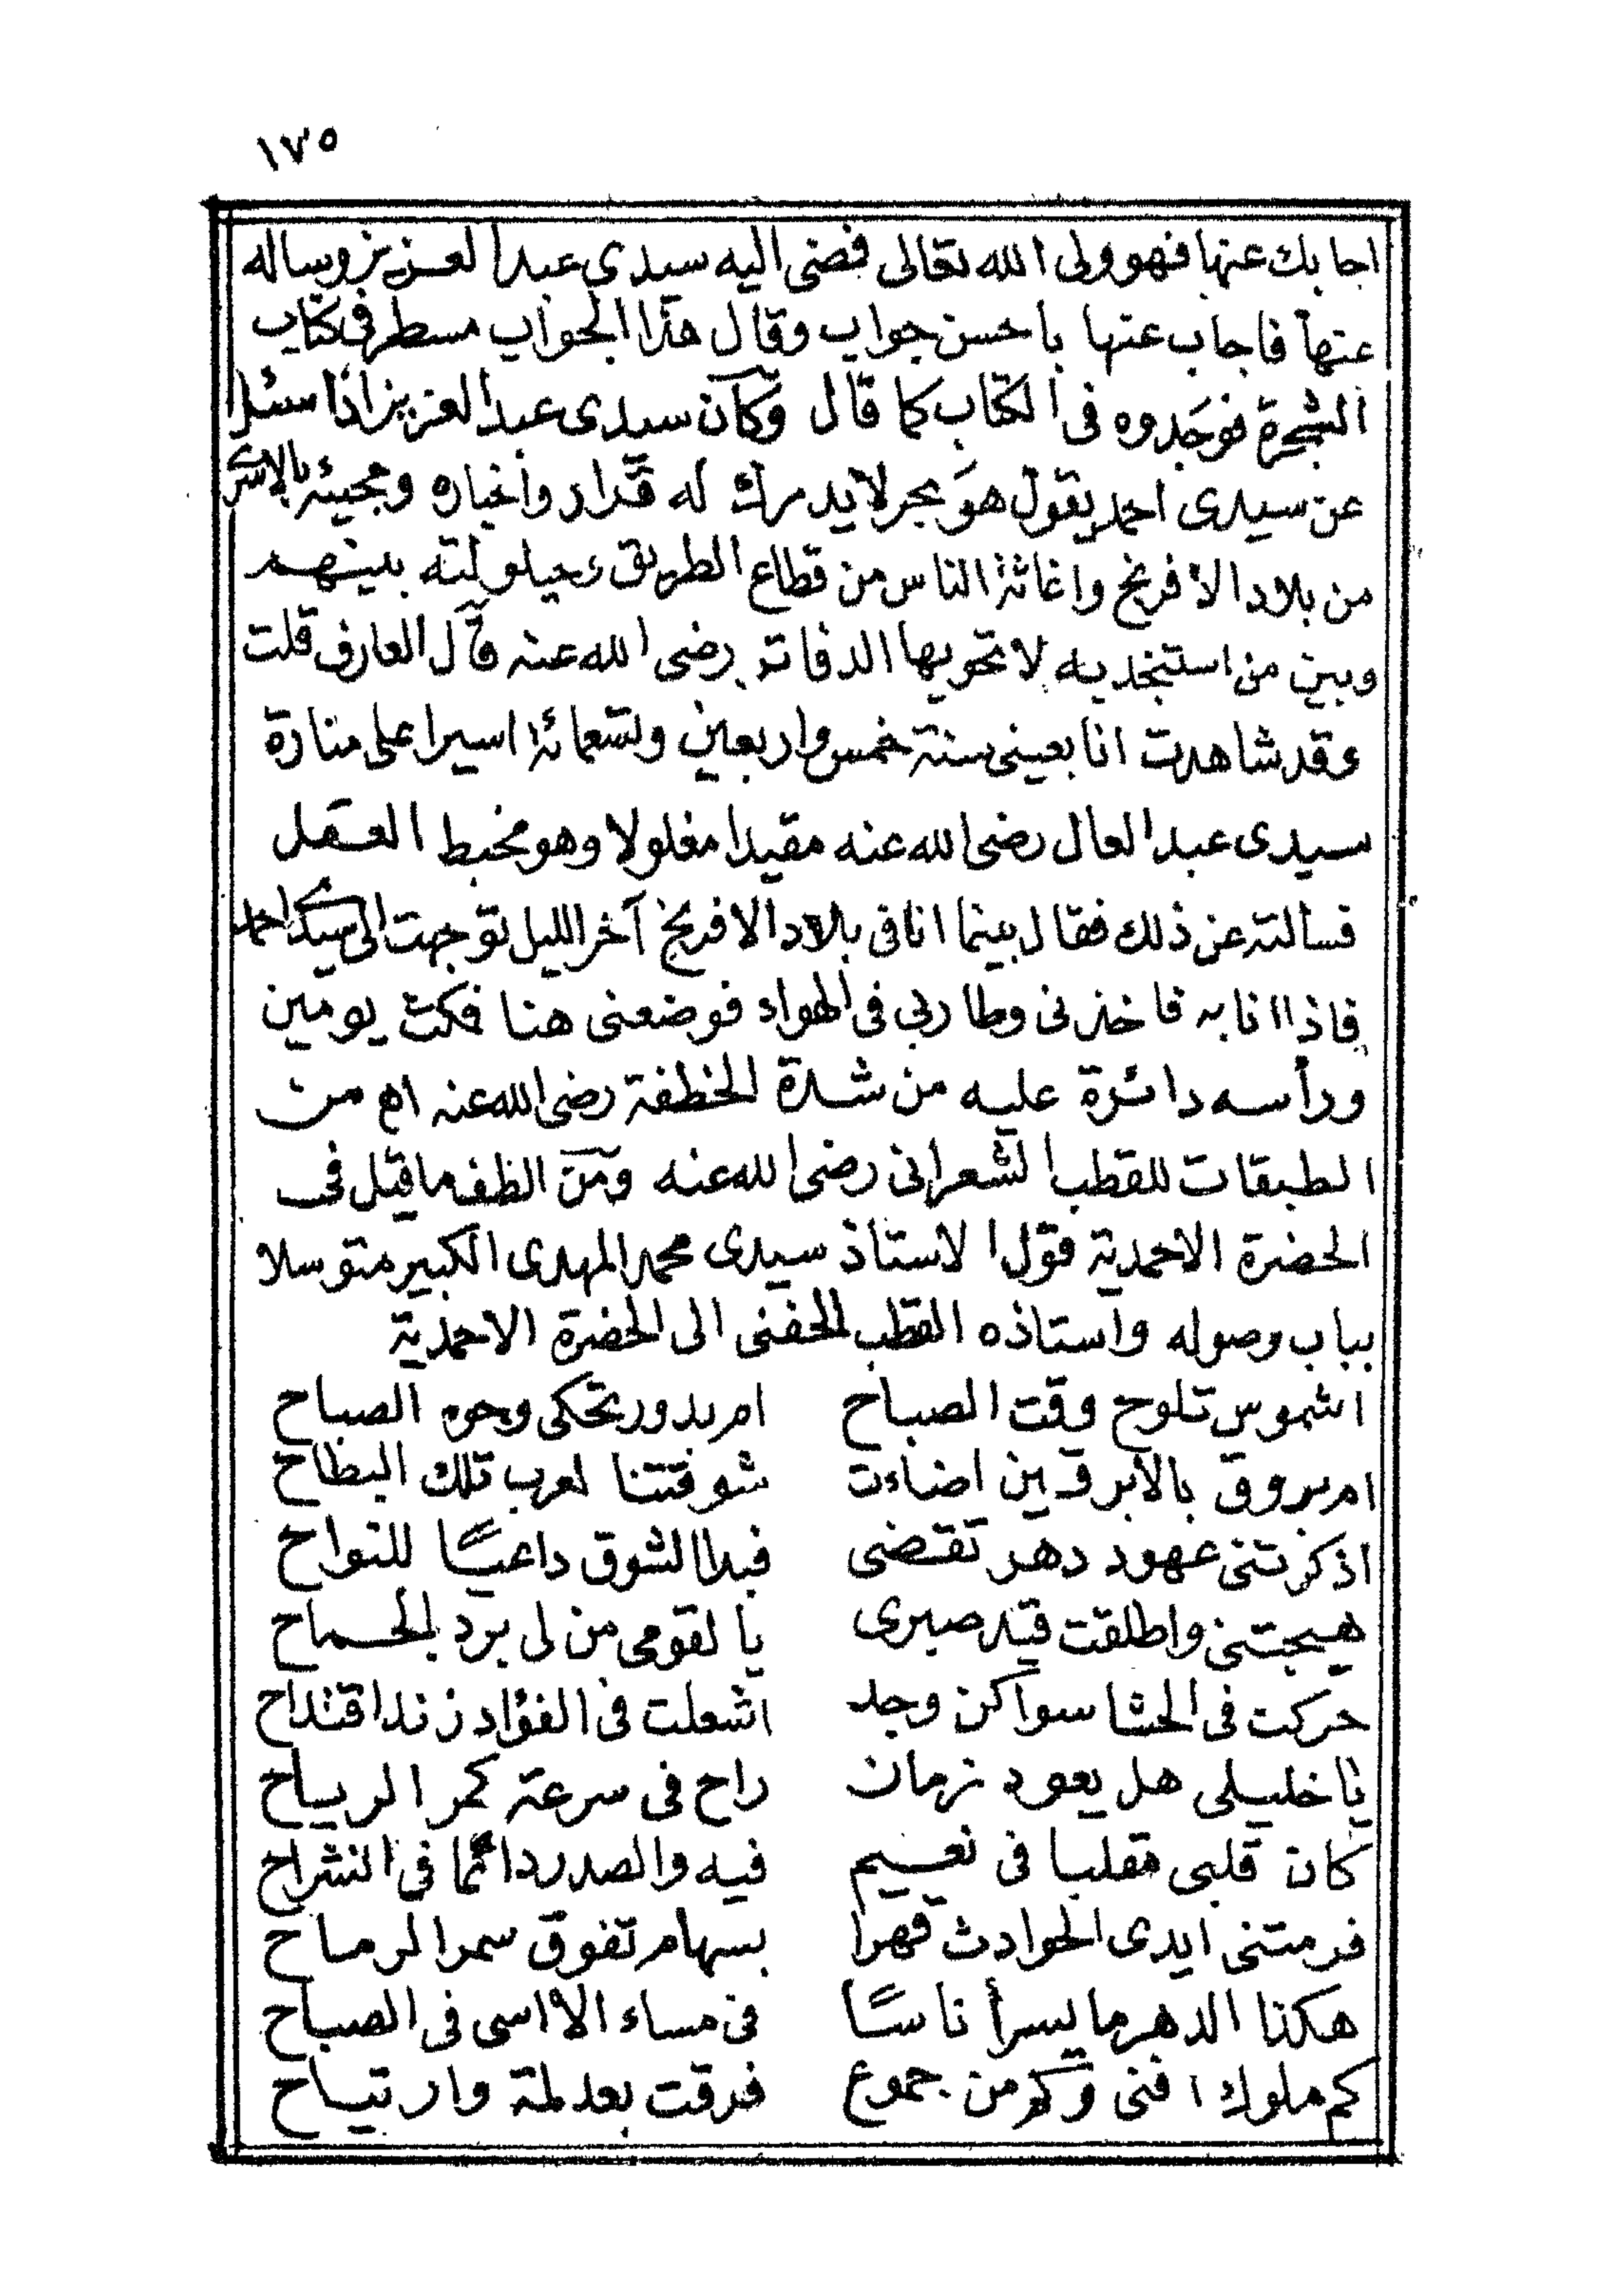 ١٧٥
اجابك عنها فهو ولى الله تعالى فمضى اليه سيدى عبد العزيز وساله
عنها فاجاب عنها باحسن جواب وقال هذا الجواب مسطر فى كتاب
الشجرة فوجدوه فى الكتاب كما قال وكان سيدى عبد العزيز اذا سئل
عن سيدى احمد يقول هو بحر لا يدرك له قرار واخباره ومجيئه بالاسرى
من بلاد الافرنج واغاثة الناس من قطاع الطريق وحيلولته بينهم
وبين من استنجد به لا تحويها الدفاتر رضى الله عنه قال العارف قلت
وقد شاهدت انا بعينى سنة خمس واربعين وتسعمائة اسيرا على منارة
سيدى عبد العال رضى الله عنه مقيدا مغلولا وهو مخبط العقل
فسألته عن ذلك فقال بينما انا فى بلاد الافرنج آخر الليل توجهت الى سيدى احمد
فاذا انا به فاخذنى وطار بى فى الهواء فوضعنى هنا فمكث يومين
ورأسه دائرة عليه من شدة الخطفة رضى الله عنه اه من
الطبقات للقطب الشعرانى رضى الله عنه ومن الظف ما قيل فى
الحضرة الاحمدية قول الاستاذ سيدى محمد المهدى الكبير متوسلا
بباب وصوله واستاذه القطب الحفنى الى الحضرة الاحمدية
اشموس تلوح وقت الصباح ام بدور تحكى وجوه الصباح
ام بروق بالابرقين اضاءت شوقتنا لعرب تلك البطاح
اذكرتنى عهود دهر تقضى فبدا الشوق داعيًا للنواح
هيجتنى واطلقت قيد صبرى يا لقومى من لى برد الجماح
حركت فى الحشا سواكن وجد اشعلت فى الفؤاد زندا قتداح
يا خليلى هل يعود زمان راح فى سرعة كمر الرياح
كان قلبى مقلبا فى نعيم فيه والصدر دائما فى انشراح
فرمتنى ايدى الحوادث قهرا بسهام تفوق سمر الرماح
هكذا الدهر ما يسر أناسًا فى مساء الا اسى فى الصباح
كم ملوك افنى وكم من جموع فرقت بعد لمة وارتياح